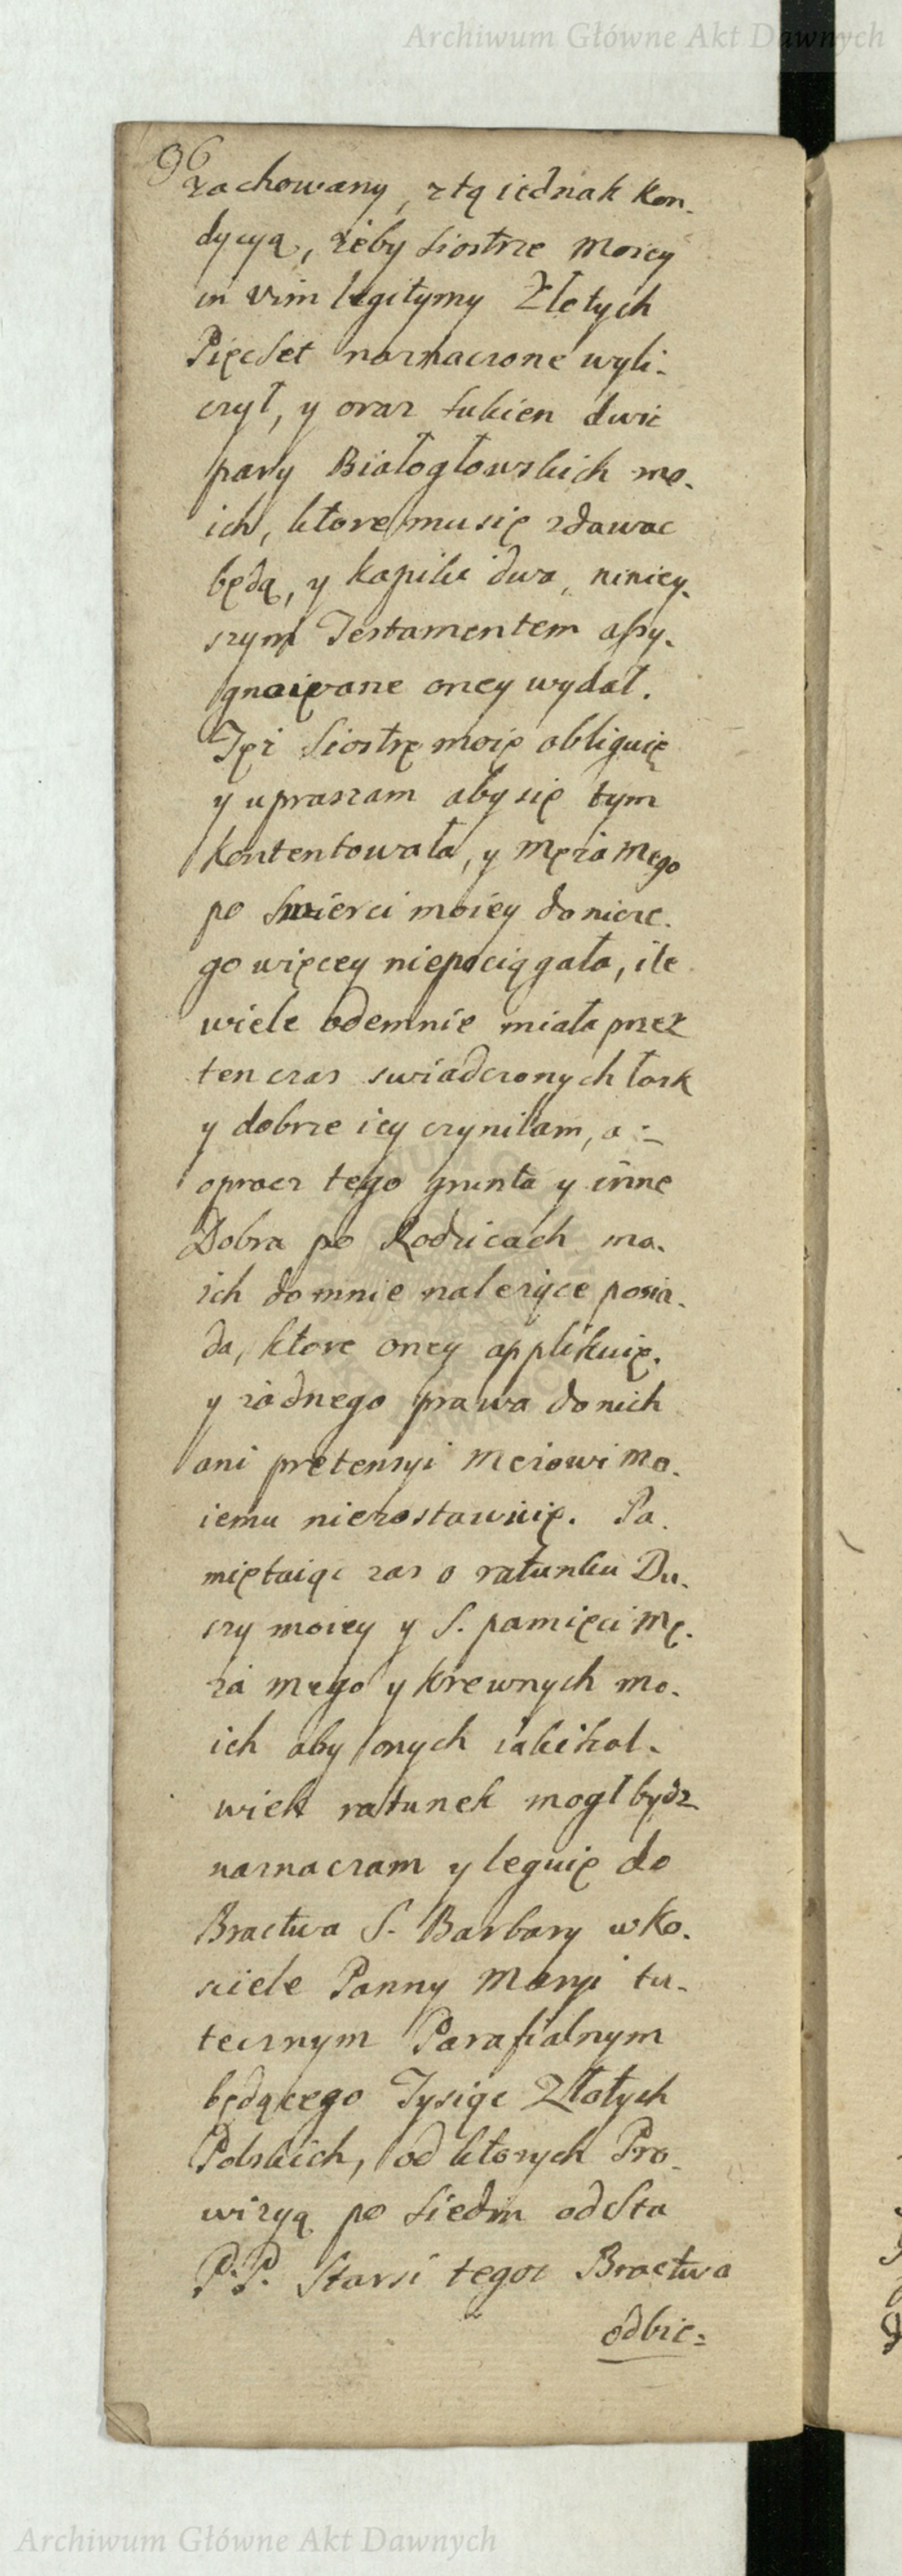 Archiwum Główne Akt Dawnych
96
zachowany, z tą iednak kon-
dycyą, żeby Siostrze moiey
in vim legitymy Złotych
Pięcset naznaczone wyli-
czył, y oraz sukien dwie
pary Białogłowskich mo-
ich, ktore mu się zdawac
będą, y kapiki dwa, niniey-
szym Testamentem assy-
gnowane oney wydał.
Tęż Siostrę moię obliguię
y upraszam aby się tym
kontentowała, y męża mego
po Smierci moiey do nicze-
go więcey niepociągała, ile
wiele odemnie miała przez
ten czas swiadczonych łask
y dobrze iey czyniłam, a =
oprocz tego grunta y inne
Dobra po Rodzicach mo-
ich do mnie należące posia-
da, ktore oney applikuię,
y żadnego prawa do nich
ani pretensyi Męzowi mo-
iemu niezostawuię. Pa-
miętaiąc zas o ratunku Du-
szy moiey y S. pamięci Mę-
ża mego y krewnych mo-
ich aby onych iakikol-
wiek ratunek mogł bydz
naznaczam y leguię do
Bractwa S. Barbary w Ko-
sciele Panny Maryi tu-
tecznym Parafialnym
będącego Tysiąc Złotych
Polskich, od ktorych Pro-
wizyą po siedm od Sta
P.P. Starsi tegoz Bractwa
odbie=
Archiwum Główne Akt Dawnych